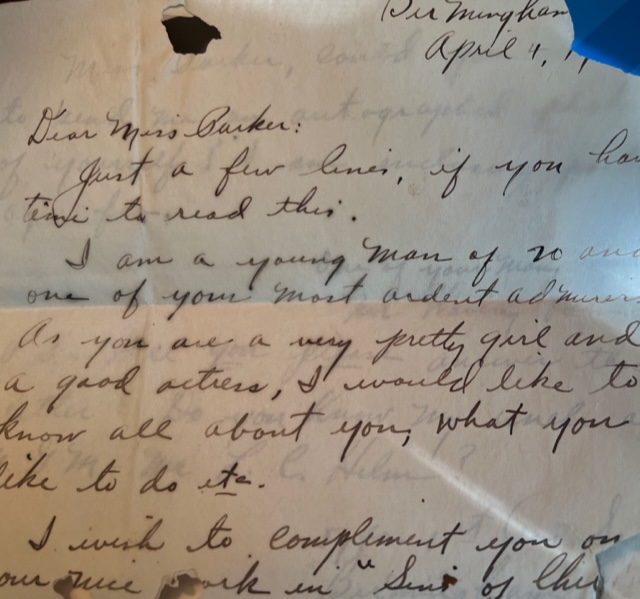 Birmingham
April 4, 1
Dear Miss Parker:
Just a few lines, if you hav
time to read this.
I am a young man of 20 and
one of your most ardent admirer
As you are a very pretty girl and
a good actress, I would like to
know all about you, what you
like to do etc.
I wish to complement you on
our nice work in "Sins of Chi